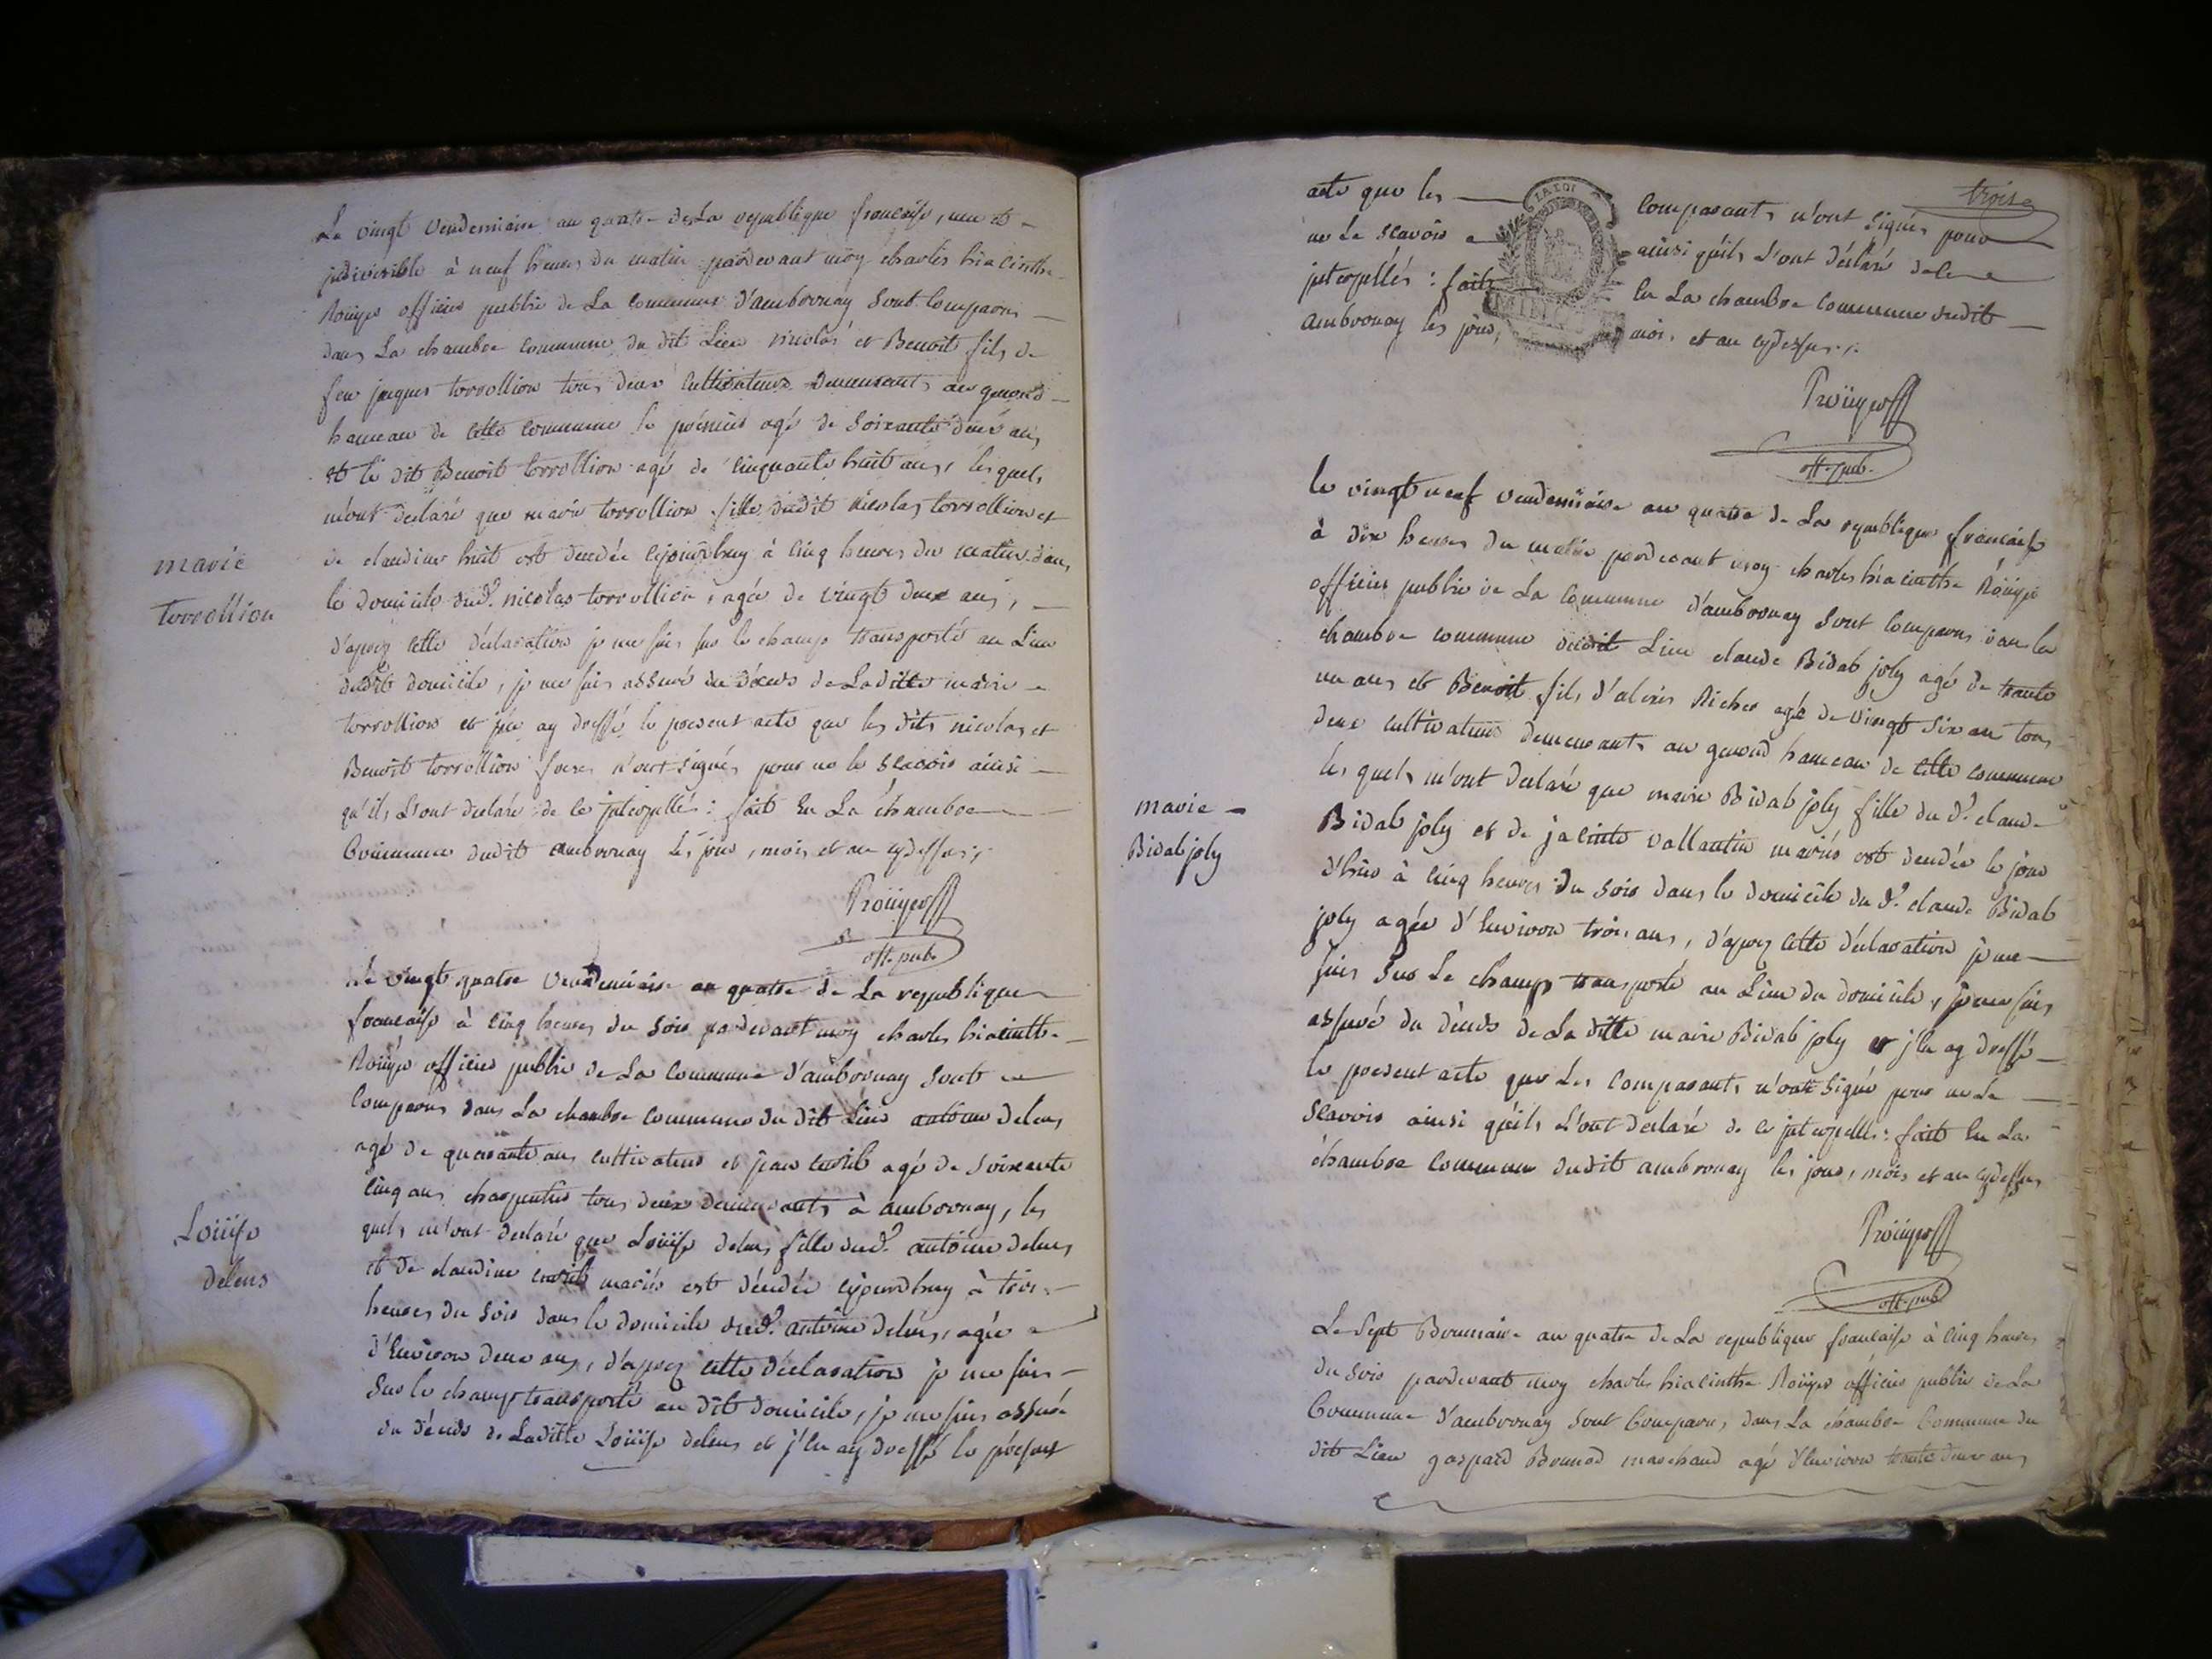 Le vingt Vendemiaire an quatre de La republique francaise, une et
jndivisible à neuf heures du matin pardevant moy charles hiacinthe
Roüyer officier public de La commune d'ambronay sont comparus
dans La chambre commune du dit Lieu nicolas et Benoit fils de
feu jacques torrollion tous deux Cultivateurs demeurants au genoud
hameau de cette commune le premier agé de soixante deux ans,
et le dit Benoit torrollion agé de cinquante huit ans, lesquels
m'ont declaré que marie torrollion fille dudit nicolas torrollion et
de claudine huit est dencdée cejourdhuy à cinq heures du matin dans
le domicile dud. nicolas torrollion, agée de vingt deux ans,
d'aprez cette déclaration je me suis sur le champ transporté au Lieu
dudit domicile, je me suis assuré du décés de Laditte marie
torrollion et j'en ay dressé le present acte que les dits nicolas et
Benoit torrollion freres n'ont signés pour ne le scavoir ainsi
qu'ils L'ont declaré de ce jnterpellés : fait En La chambre
Commune dudit ambronay les jour, mois et an cydessus ;.
Roüyer
off. pub.
marie
torrollion
Le vingt quatre vendemiaire an quatre de La republique
francaise à cinq heures du soir pardevant moy charles hiacinthe
Roüyer officier public de La Commune d'ambronay sont
Comparus dans La chambre commune du dit Lieu antoine delens
agé de quarante ans cultivateur et jean agé de soixante
cinq ans charpentier tous deux demeurants à ambronay, les
quels m'ont declaré que Loüise delens fille dud. antoine delens
et de claudine mariés est décédée cejourdhuy à trois
heures du soir dans le domicile dud. antoine delens, agée
d'Environ deux ans, d'aprez cette déclaration je me suis
sur le champ transporté au dit domicile, je me suis assuré
du décés de Laditte Loüise delens et j'En ay dressé le présent
Loüise
delens
trois
acte que les comparants n'ont signés pour
ne Le scavoir ainsi qu'ils L'ont déclaré de ce
jnterpellés : fait En La chambre commune dudit
ambronay les jour, mois, et an cydessus ;.
Roüyer
off. pub.
le vingt neuf vendemiaire an quatre de La republique francaise
à dix heures du matin pardevant moy charles hiacinthe Roüyer
officier public de La Commune d'ambronay sont comparus dans la
chambre commune dudit Lieu claude Bidal joly agé de trente
un ans et Benoit fils d'alexis Richer agé de vingt six ans tous
deux cultivateurs demeurants au genoud hameau de cette commune
les quels m'ont declaré que marie Bidal joly fille du d. claude
Bidal joly et de jacinte vallantin mariés est décédée le jour
d'hier à cinq heures du soir dans le domicile du d. claude Bidal
joly agée d'Environ trois ans, d'aprez cette déclaration je me
suis sur Le champ transporté au Lieu du domicile, je me suis
assuré du décés de La ditte marie Bidal joly et j'En ay dressé
le present acte que Les comparants n'ont signé pour ne Le
scavoir ainsi qu'ils L'ont declaré de ce jnterpellés : fait En La
chambre commune dudit ambronay les jour, mois et an cydessus
Roüyer
off. pub.
marie
Bidal joly
Le sept Brumaire an quatre de La republique francaise à cinq heures
du soir pardevant moy charles hiacinthe Roüyer officier public de La
Commune d'ambronay sont Comparus dans La chambre Commune du
dit Lieu gaspard Brunod marchand agé d'Environ trente deux ans